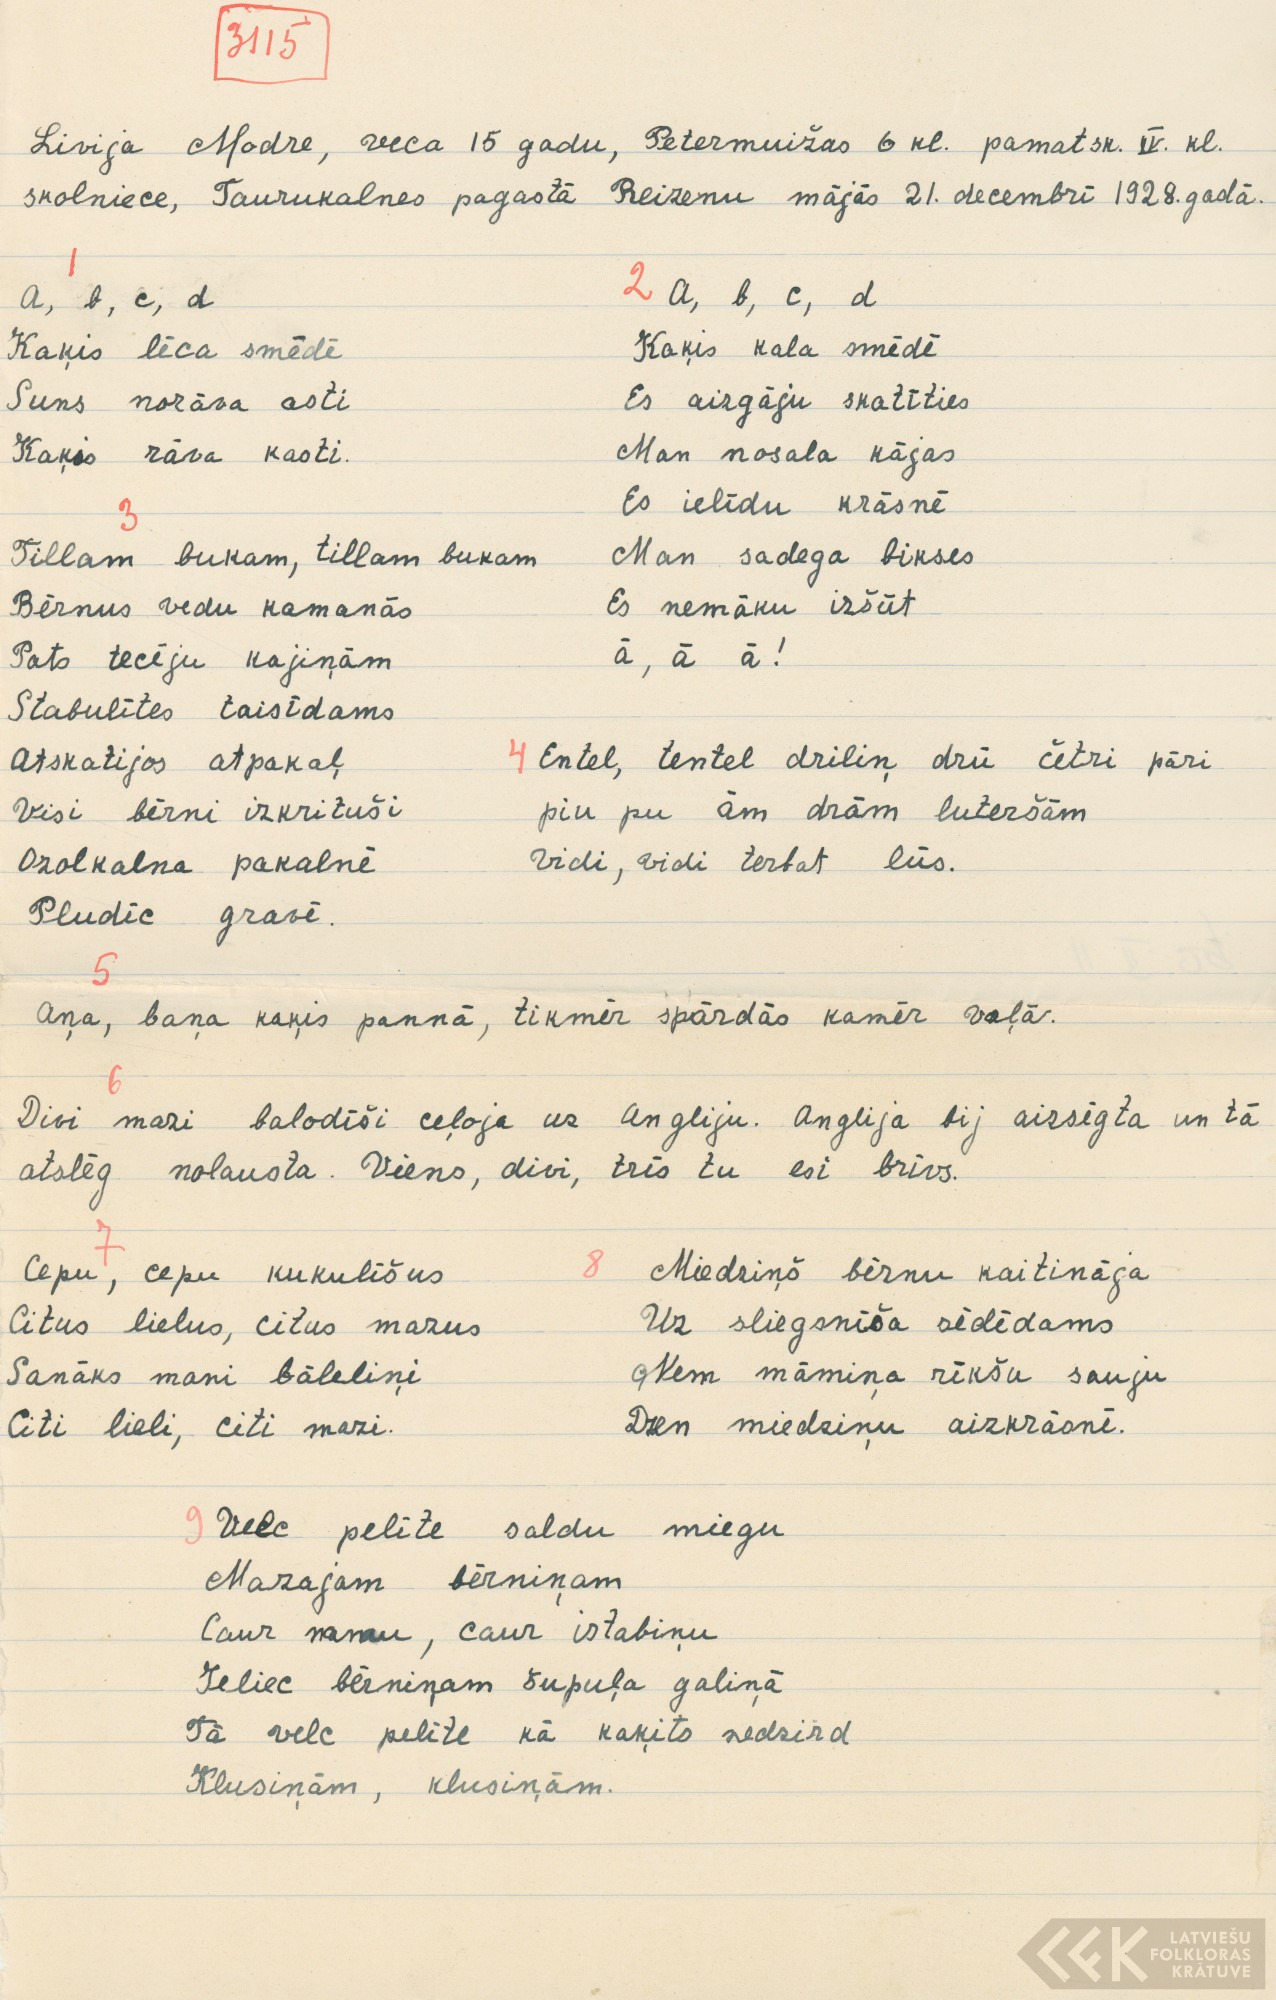 3115
Livija Modre, veca 15 gadu, Petermuižas 6 kl. pamatsk. IV. kl.
skolniece, Taurukalnes pagastā Reizenu mājās 21. decembrī 1928. gadā.
1
A, b, c, d
Kaķis lēca smēdē
Suns norāva asti
Kaķis rāva kasti.
2 A, b, c, d
Kaķis kala smēdē
Es aizgāju skatīties
Man nosala kājas
Es ielīdu krāsnē
Man sadega bikses
Es nemāku izšūt
ā, ā ā!
3
Tillam bukam, tillam bukam
Bērnus vedu kamanās
Pats tecēju kajiņām
Stabulītes taisīdams
Atskatijos atpakaļ
Visi bērni izkrituši
Ozolkalna pakalnē
Pludīc gravē.
4 Entel, tentel driliņ drū četri pāri
piu pu ām drām luteršām
Vidi, vidi terbat lūs.
5
Aņa, baņa kaķis pannā, tikmēr spārdās kamēr vaļā.
6
Divi mazi balodīši ceļoja uz Angliju. Anglija bij aizsēgta un tā
atslēg nolausta. Viens, divi, trīs tu esi brīvs.
7
Cepu, cepu kukulīšus
Citus lielus, citus mazus
Sanāks mani bāleliņi
Citi lieli, citi mazi.
8 Miedziņš bērnu kaitināja
Uz sliegsnīša sēdēdams
Ņem māmiņa rīkšu sauju
Dzen miedziņu aizkrāsnē.
9 Velc pelīte saldu miegu
Mazajam bērniņam
Caur namu, caur istabiņu
Ieliec bērniņam šupuļa galiņā
Tā velc pelīte kā kaķīts nedzird
Klusiņām, klusiņām.
LATVIEŠU
FOLKLORAS
KRĀTUVE